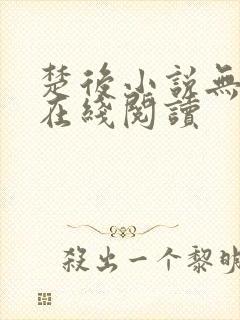 楚後小説無
在綫閱讀
殺出一个黎明